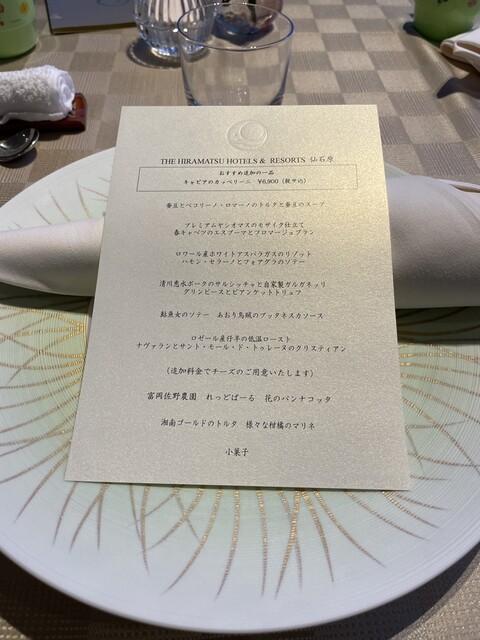 THE HIRAMATSU HOTELS & RESORTS 仙石原
おすすめ追加の一品
キャビアのカッペリーニ ¥6,900（税サ込）
蚕豆とペコリーノ・ロマーノのトルタと蚕豆のスープ
プレミアムヤシオマスのモザイク仕立て
春キャベツのエスプーマとフロマージュブラン
ロワール産ホワイトアスパラガスのリゾット
ハモン・セラーノとフォアグラのソテー
清川恵水ポークのサルシッチャと自家製ガルガネッリ
グリンピースとビアンケットトリュフ
鮎魚女のソテー あおり烏賊のプッタネスカソース
ロゼール産仔羊の低温ロースト
ナヴァランとサント・モール・ド・トゥレーヌのクリスティアン
（追加料金でチーズのご用意いたします）
富岡佐野農園 れっどぱーる 花のパンナコッタ
湘南ゴールドのトルタ 様々な柑橘のマリネ
小菓子